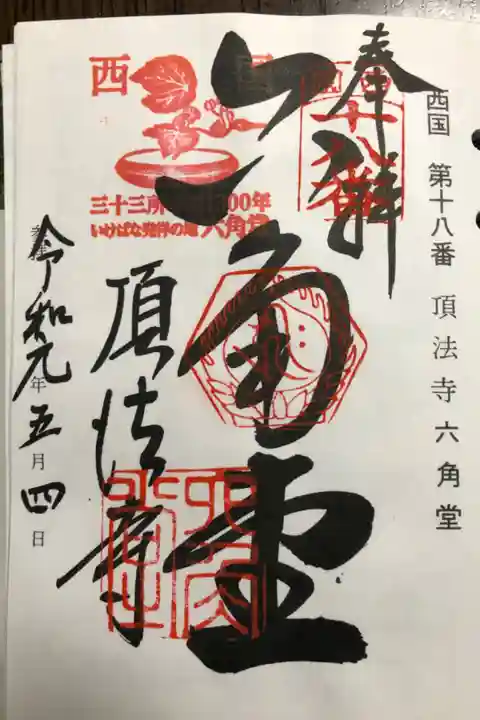 西国 第十八番 頂法寺六角堂
奉拝
六角堂
頂法寺
令和元年五月四日
西国
三十三所 1300年
いけばな発祥の地 六角堂